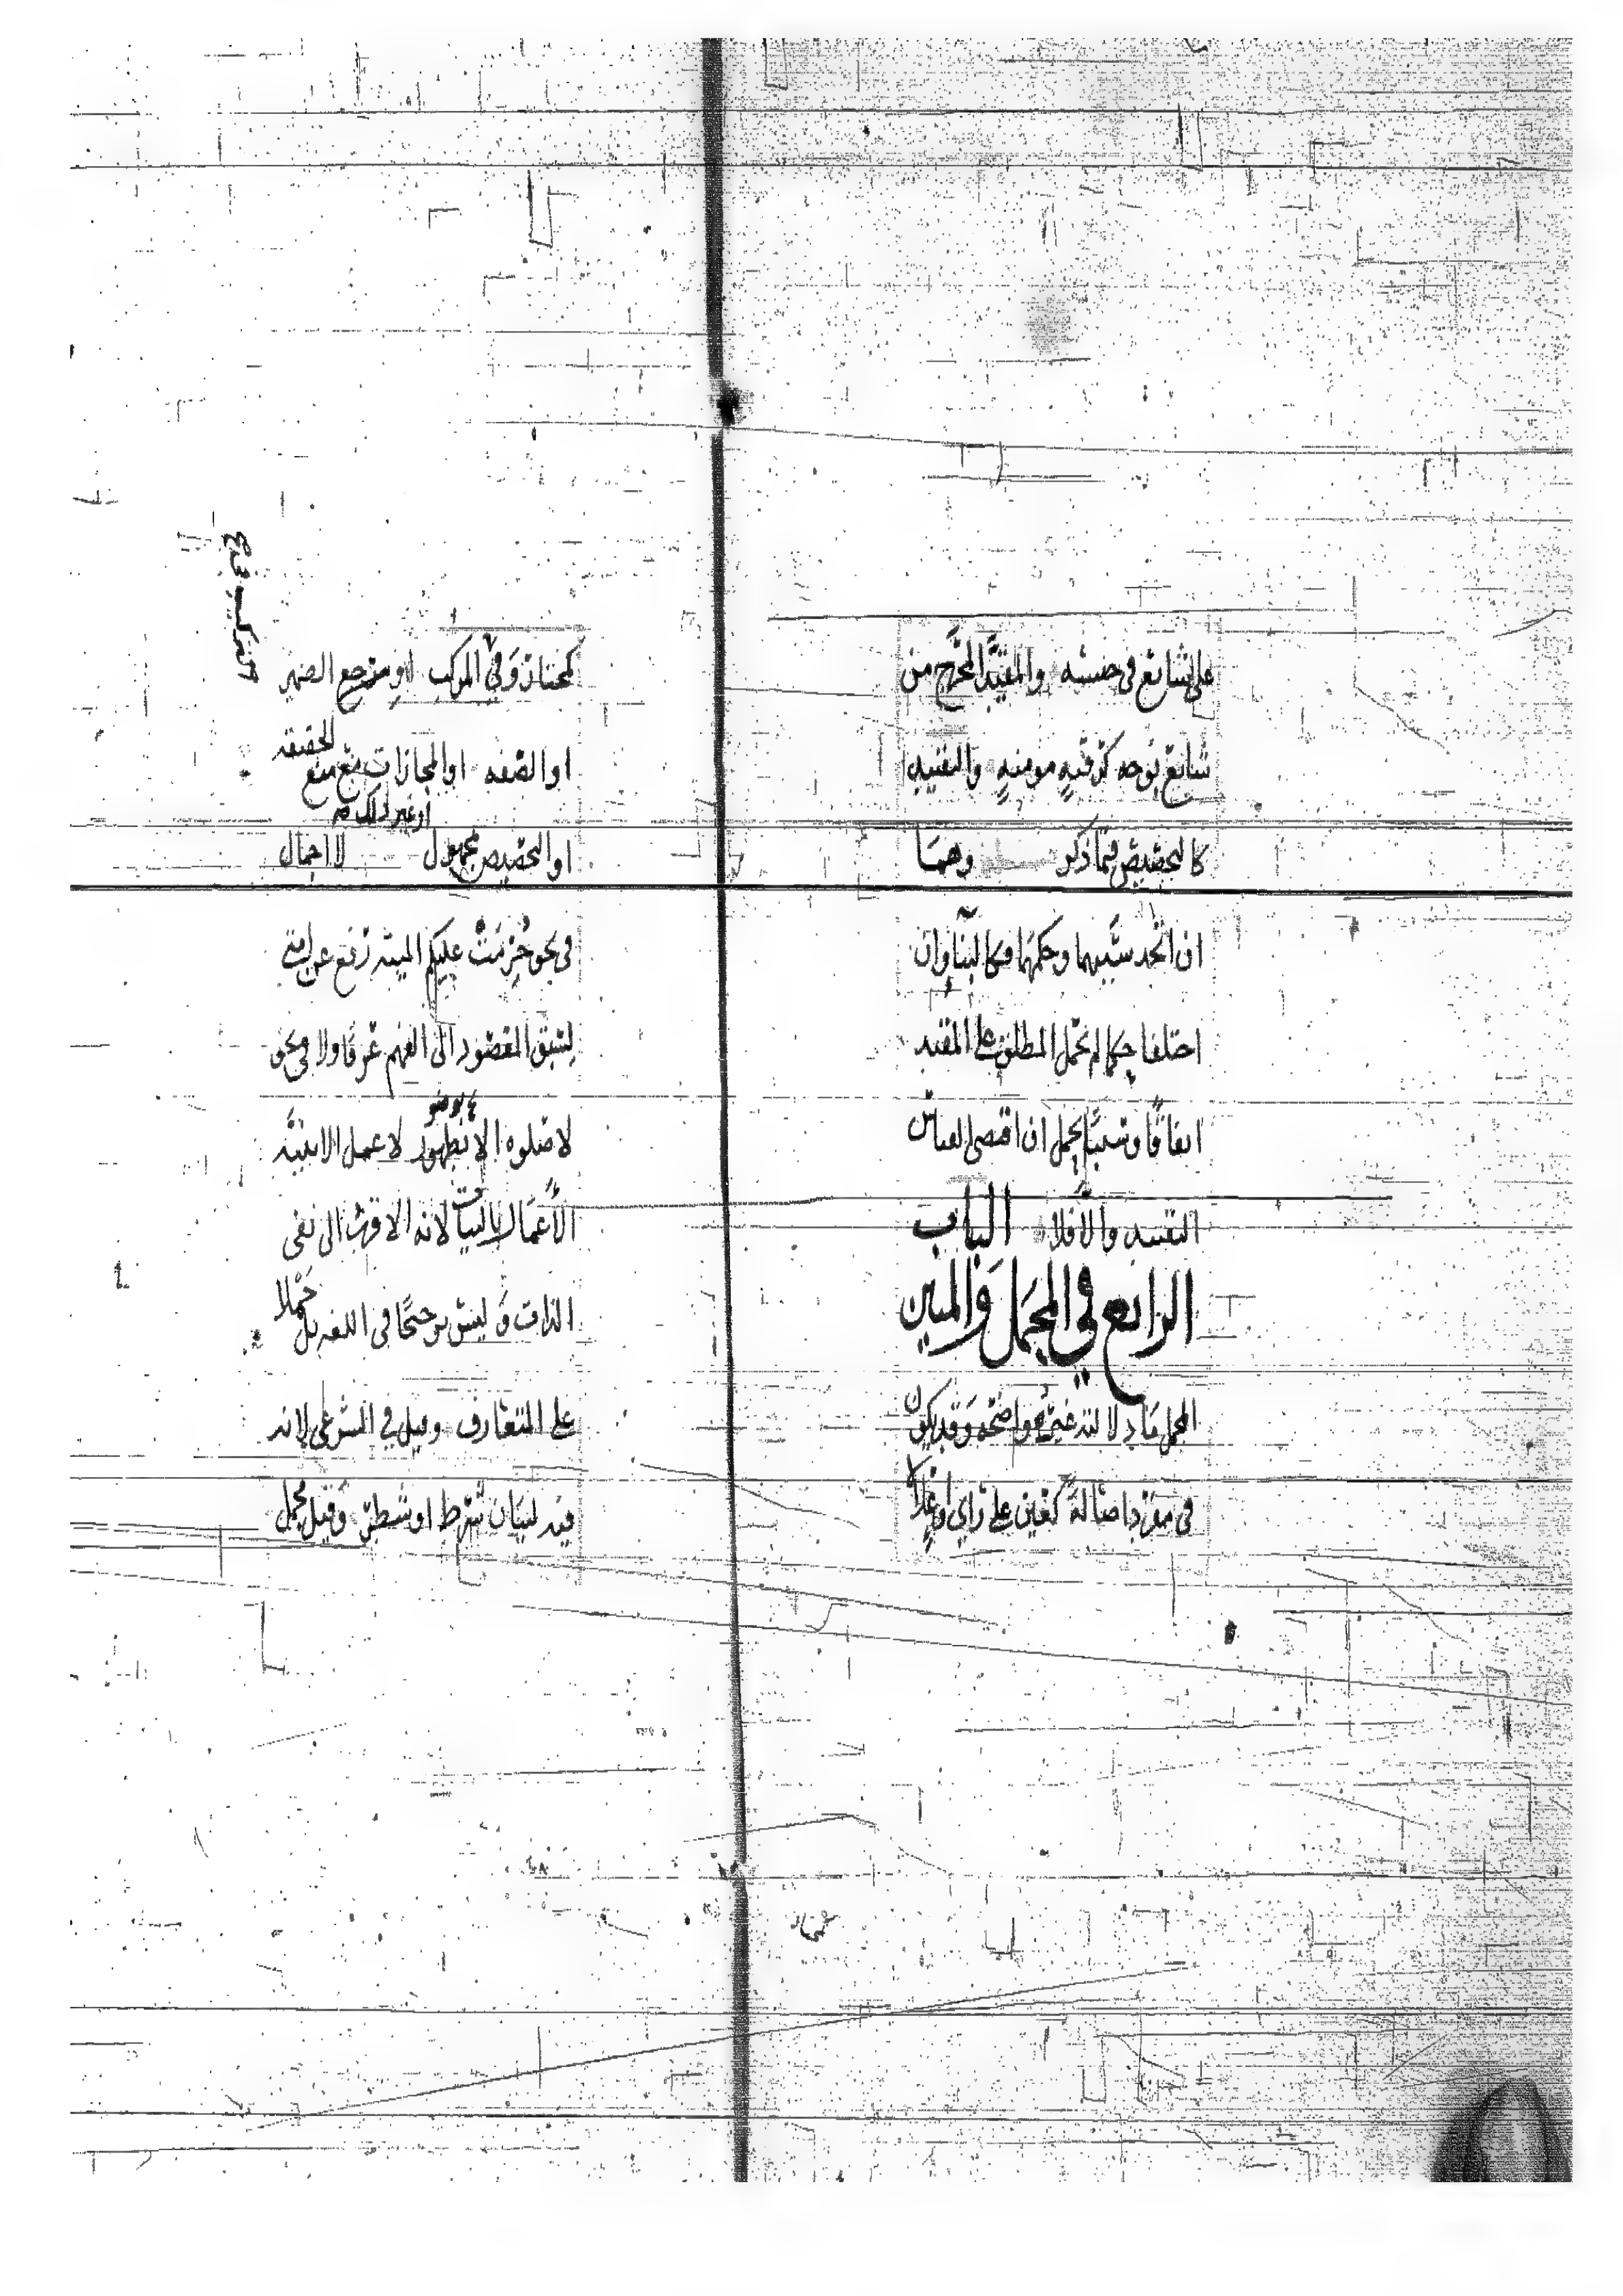 على شايع في جنسه والمقيد المخرج من
شايع بوجه كرقبةٍ مومنةٍ والتقييد
كالتخصيص فيما ذكر وهما
ان اتحد سببهما وحكمهما فكالبنا وان
اختلفا حكما لم يحمل المطلق على المقيد
اتفاقًا وسببًا يحمل ان اقتضى القياس
التقييد والّا فلا الباب
الرابع في المجمل والمبين
المجمل مَا دلالته غير واضحه وقد يكون
في مفرد باصالة كعين على راي او اعلال
كمختار وفي المركب او مرجع الضمير
او الصفه او المجازات مع منع
الحقيقه
او التخصيص بمجهول لا اجمال
او غير ذلك صح
في نحو حُرِّمَتْ عليكم الميته رفع عن امتي
لسبق المقصود الى الفهم عرفًا ولا في نحو
لا صلوه الا بطهور لا عمل الا بنيّه
الأعمَال بالنيات لانه الاقرب الى نفى
الذات وليس ترجيحًا في اللغه بل حملا
على المتعارف وقيل في الشرعي لانه
فيه لبيان شرط او شطر وقيل مجمل